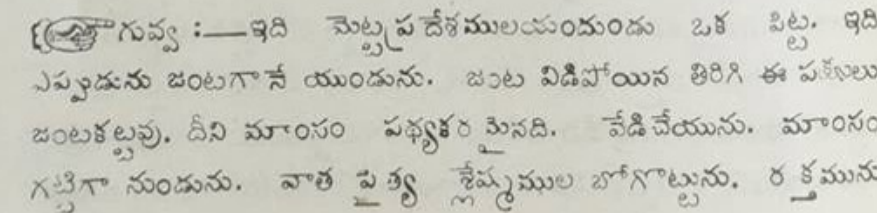 గువ్వ :—ఇది మెట్టప్రదేశములయందుండు ఒక పిట్ట. ఇది
ఎప్పుడును జంటగానే యుండును. జంట విడిపోయిన తిరిగి ఈ పక్షులు
జంటకట్టవు. దీని మాంసం పథ్యకరమైనది. వేడిచేయును. మాంసం
గట్టిగా నుండును. వాత పైత్య శ్లేష్మముల బోగొట్టును. రక్తమును